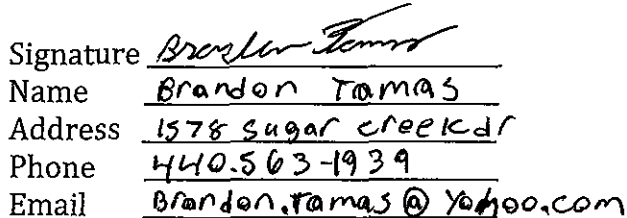 Signature Brandon Tamas
Name Brandon Tamas
Address 1578 sugar creek dr
Phone 440.563-1939
Email Brandon.Tamas@Yahoo.com